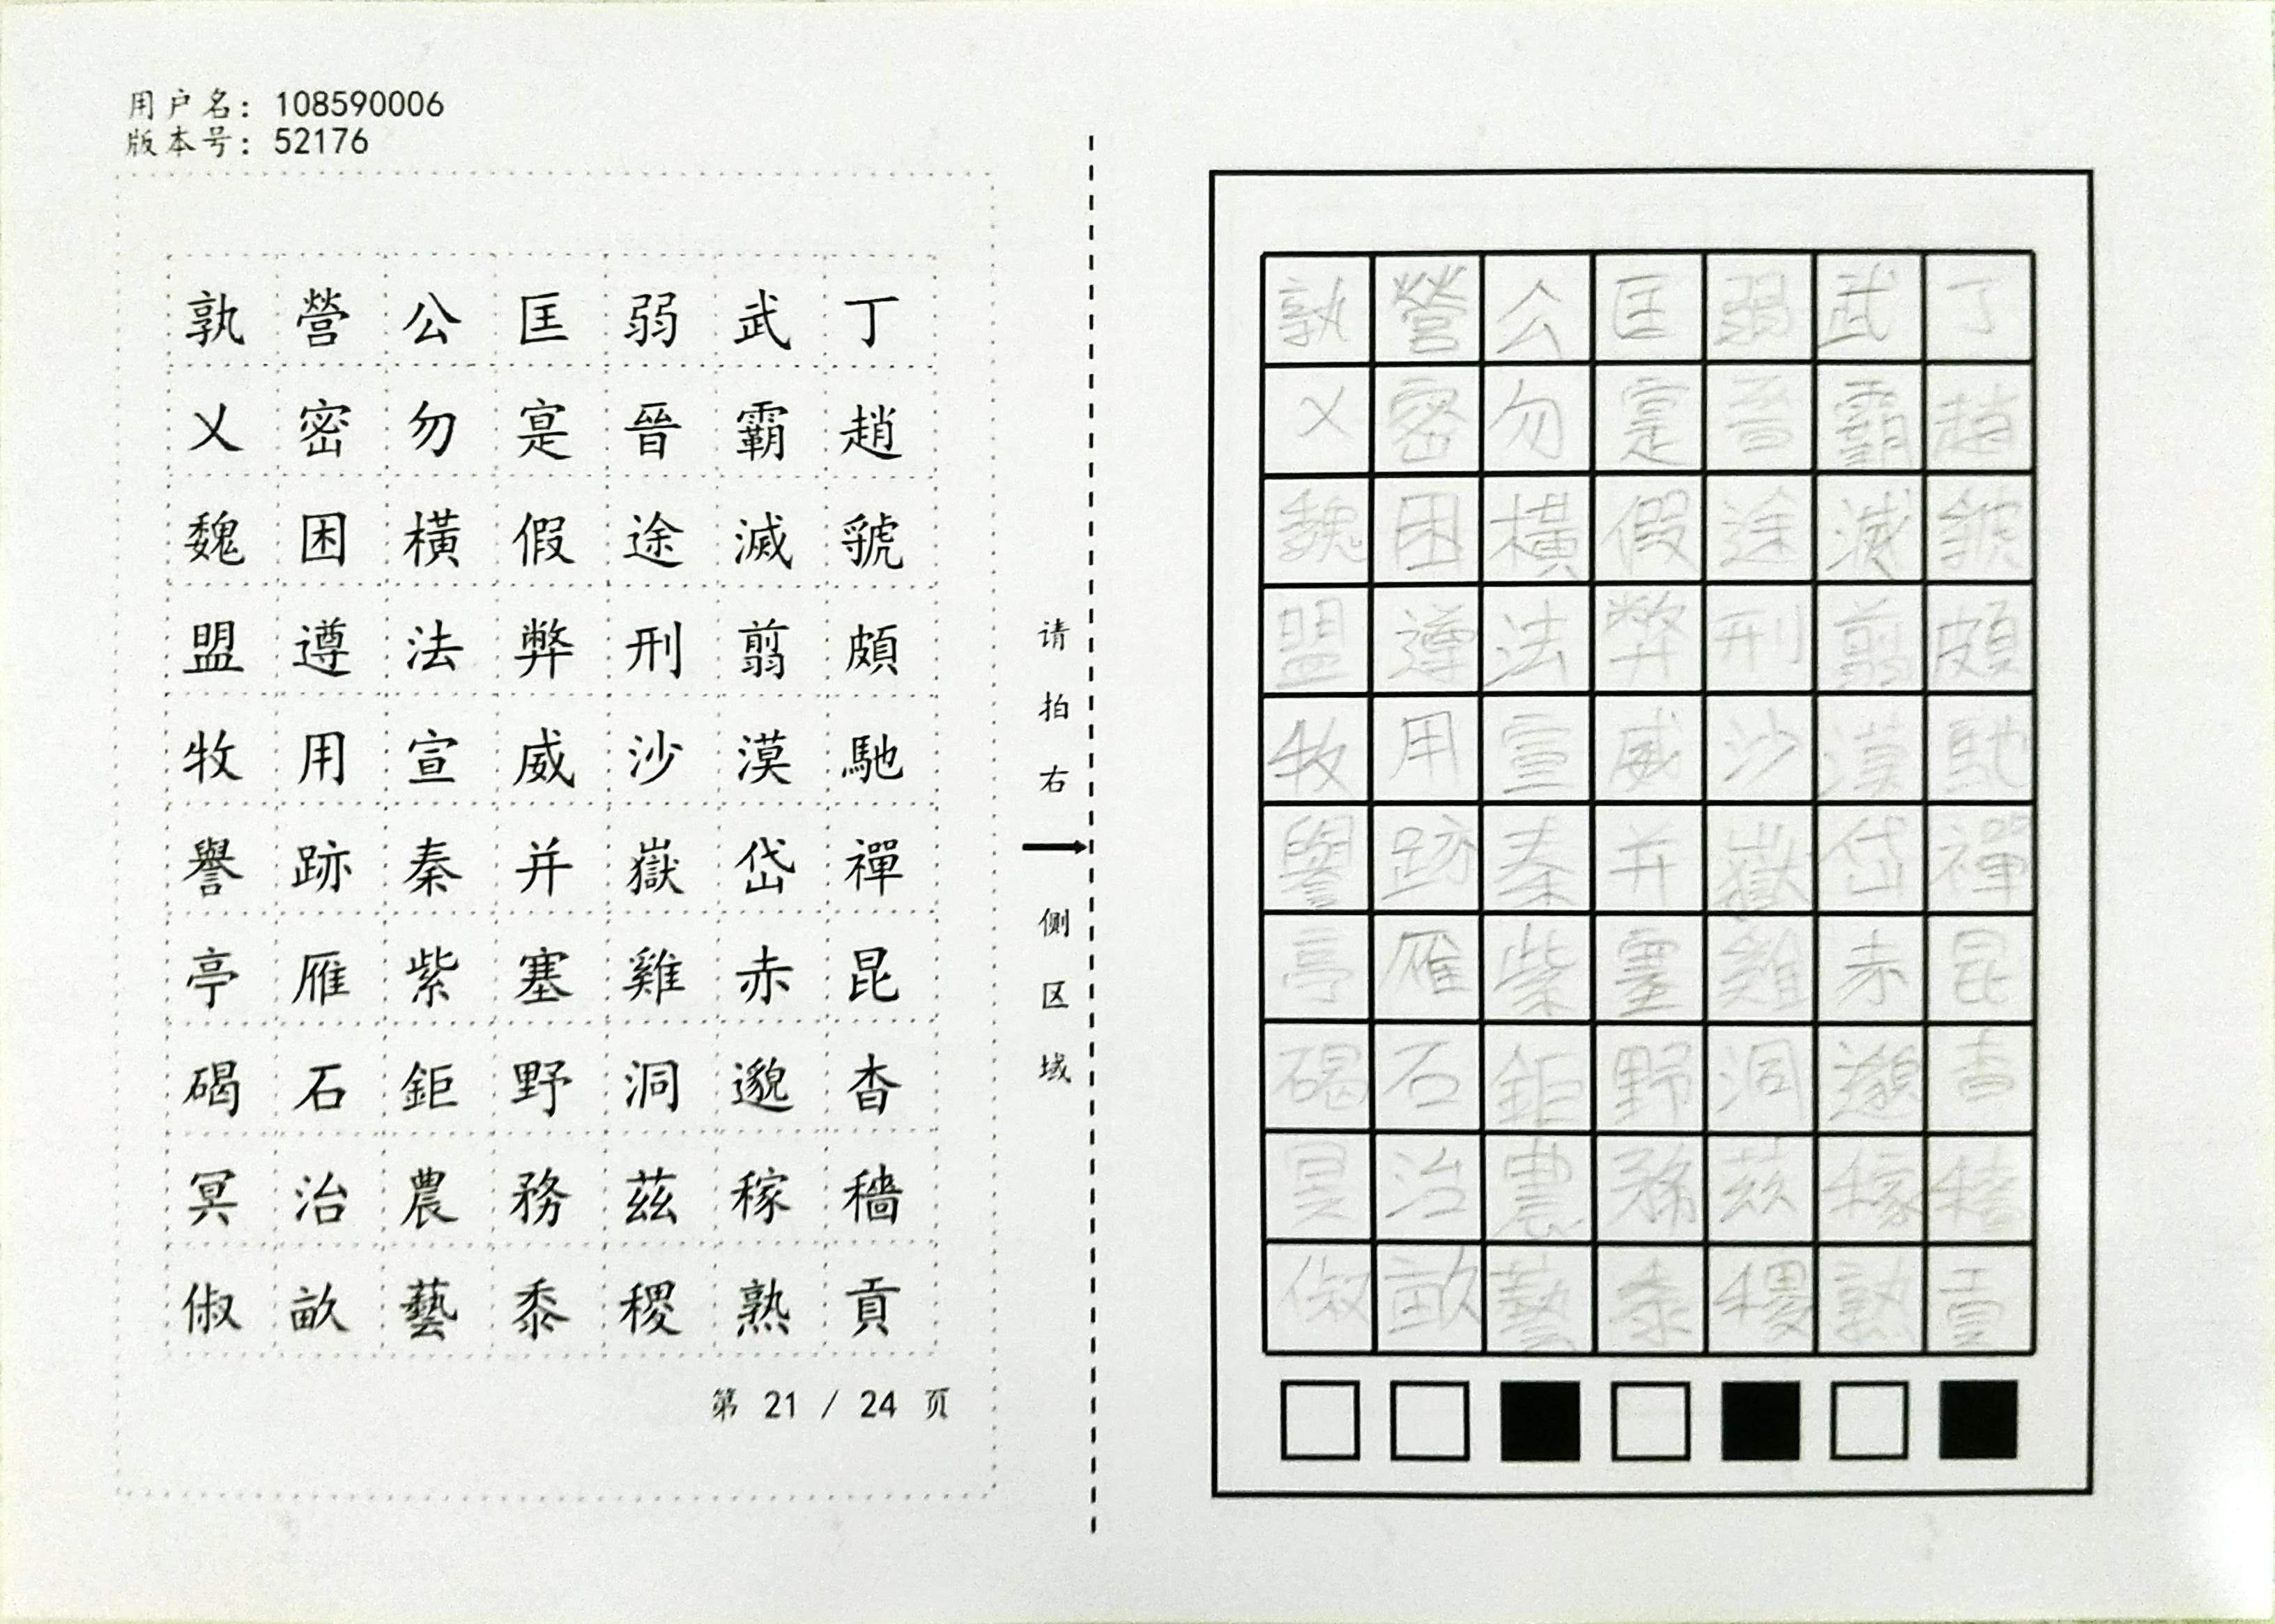 用户名: 108590006
版本号: 52176
孰 營 公 匡 弱 武 丁
乂 密 勿 寔 晉 霸 趙
魏 困 橫 假 途 滅 虢
盟 遵 法 弊 刑 翦 頗
牧 用 宣 威 沙 漠 馳
譽 跡 秦 并 嶽 岱 禪
亭 雁 紫 塞 雞 赤 昆
碣 石 鉅 野 洞 邈 杳
冥 治 農 務 茲 稼 穡
俶 畝 藝 黍 稷 熟 貢
第 21 / 24 页
请拍右侧区域
孰 營 公 匡 弱 武 丁
乂 密 勿 寔 晉 霸 趙
魏 困 橫 假 途 滅 虢
盟 遵 法 弊 刑 翦 頗
牧 用 宣 威 沙 漠 馳
譽 跡 秦 并 嶽 岱 禪
亭 雁 紫 塞 雞 赤 昆
碣 石 鉅 野 洞 邈 杳
冥 治 農 務 茲 稼 穡
俶 畝 藝 黍 稷 熟 貢